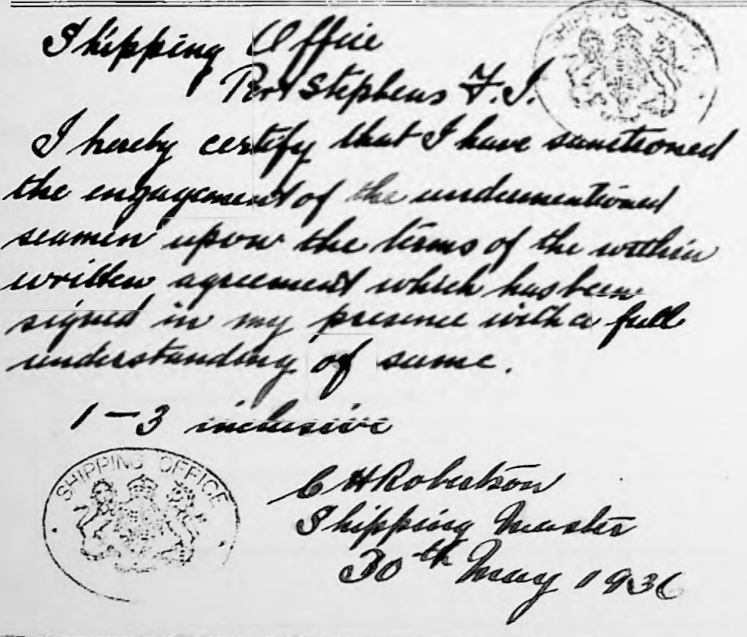 SHIPPING OFFICE
Shipping Office
Port Stephens F.I.
I hereby certify that I have sanctioned
the engagement of the undermentioned
seamen upon the terms of the within
written agreement which has been
signed in my presence with a full
understanding of same.
1-3 inclusive
SHIPPING OFFICE
C H Robertson
Shipping Master
30th May 1936